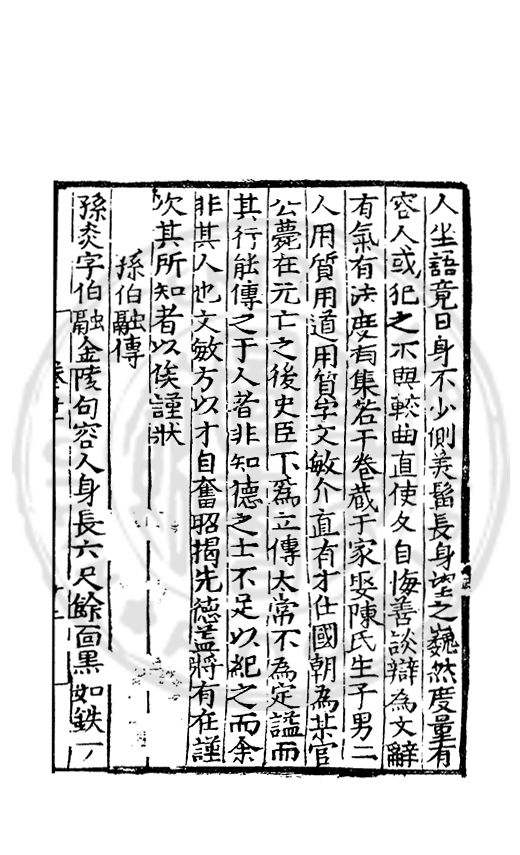 人坐語竟日身不少側美髯長身望之巍然度量有
容人或犯之不與較曲直使久自悔善談辯為文辭
有氣有法度有集若干卷藏于家娶陳氏生子男二
人用質用道用質字文敏介直有才仕國朝為某官
公薨在元亡之後史臣不為立傳太常不為定謚而
其行能傳之于人者非知德之士不足以紀之而余
非其人也文敏方以才自奮昭揭先德蓋將有在謹
次其所知者以俟謹狀
孫伯融傳
孫炎字伯融金陵句容人身長六尺餘面黑如鉄一